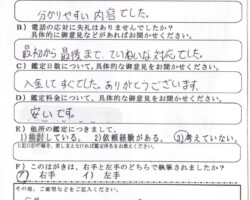 分かりやすい内容でした。
B）電話の応対に失礼はありませんでしたか？
具体的な御意見などがあればお聞かせください。
最初から最後まで、ていねいな対応でした。
C）鑑定日数について、具体的な御意見をお聞かせください。
入金してすぐでした。ありがとうございます。
D）鑑定料金について、具体的な御意見をお聞かせください。
安いです。
E）他所の鑑定につきまして。
1)検討している。 2)依頼経験がある。 3)考えていない。
F）このはがきは、右手と左手のどちらで執筆されましたか？
ア）右手 イ）左手
その他、ご要望などをご記入ください。